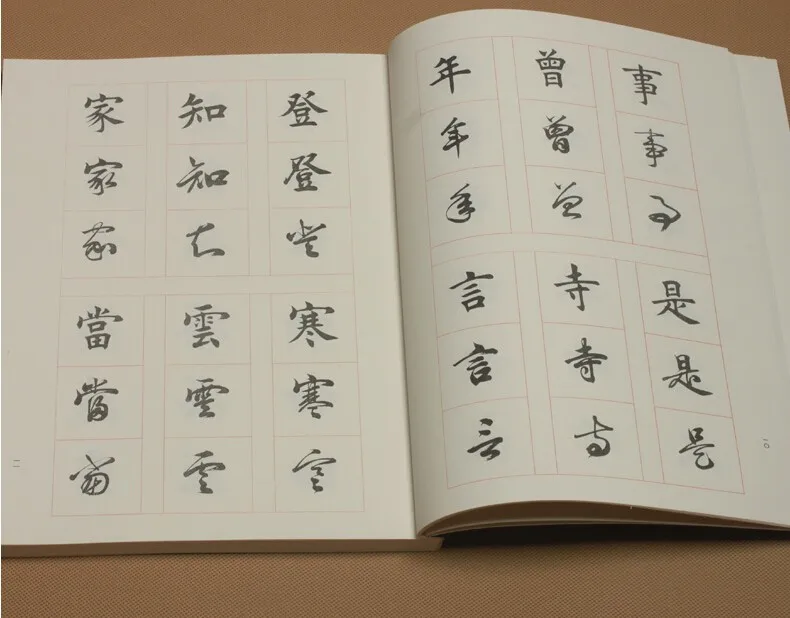 事事事
曾曾曾
年年年
是是是
寺寺寺
言言言
一〇
登登登
知知知
家家家
寒寒寒
雲雲雲
當當當
一一